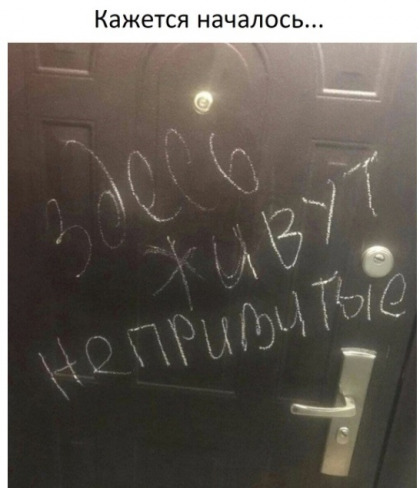 Кажется началось...
Здесь
живут
не привитые